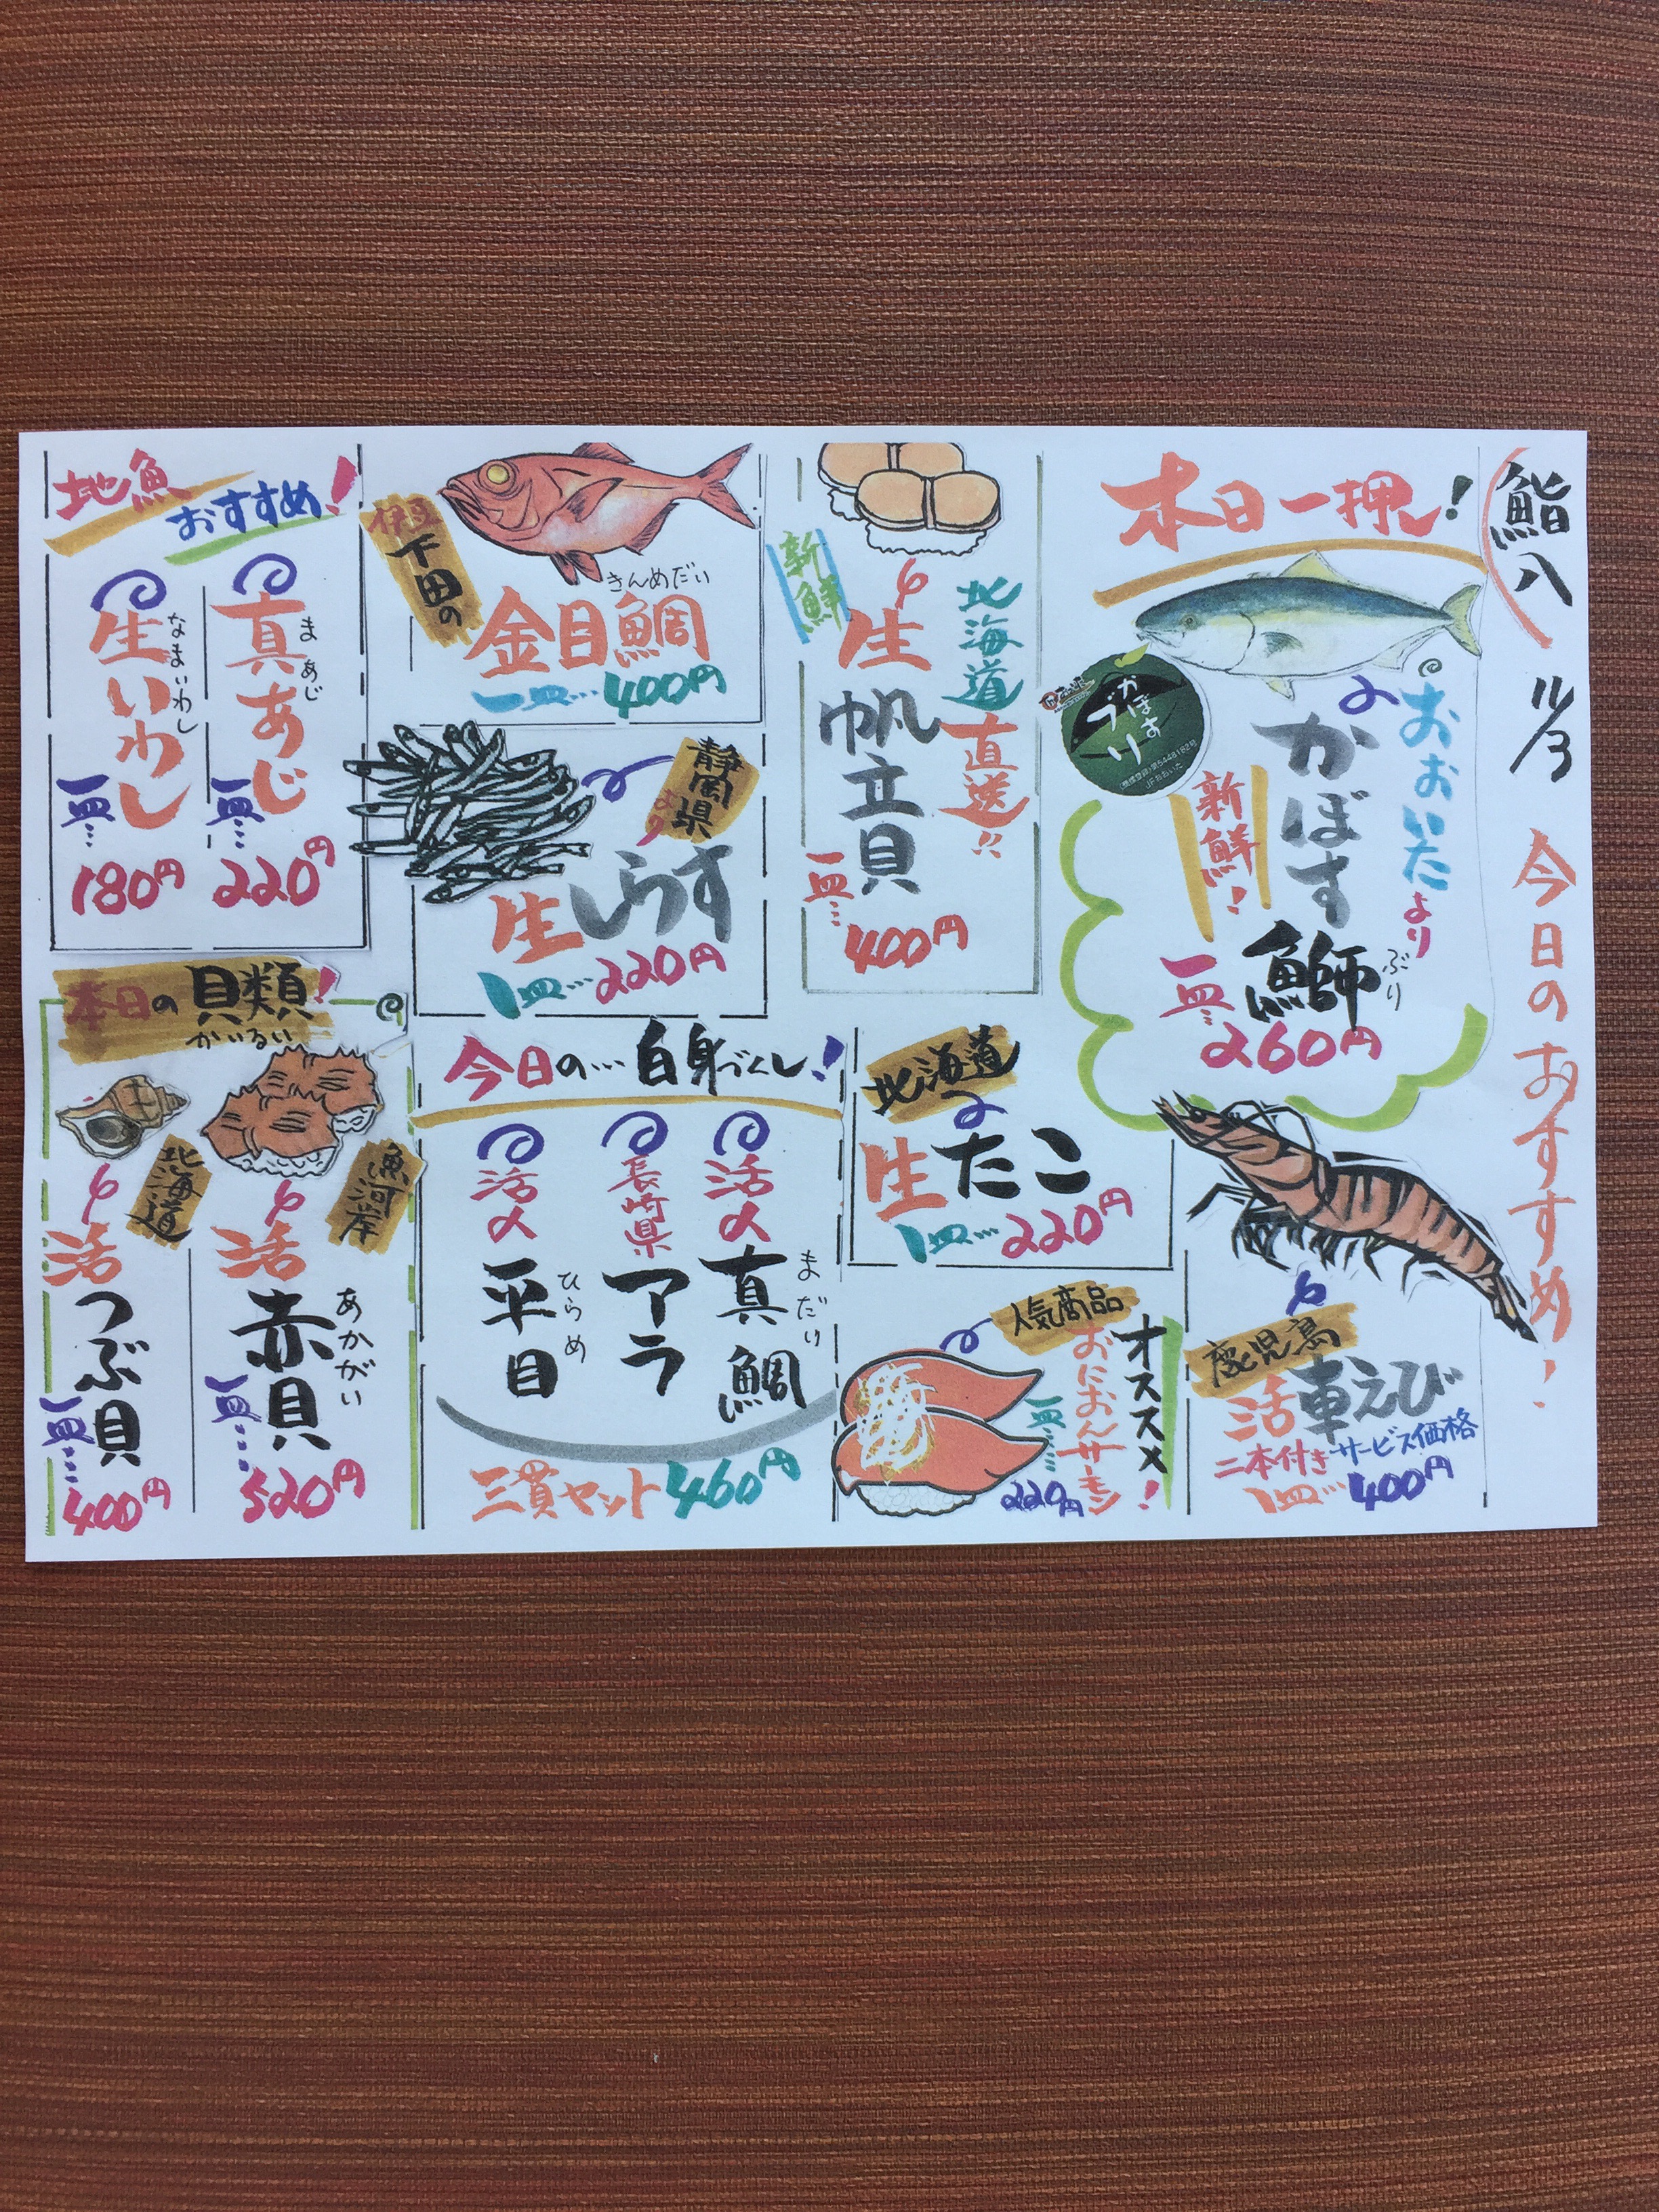 鮨八
11/3
今日のおすすめ!
本日一押し!
おおいたより
かぼす
鰤
ぶり
新鮮!
一皿…
260円
かぼす
ブリ
JFおおいた
新鮮
北海道
直送!!
生
帆立貝
一皿…
400円
伊豆
下田の
きんめだい
金目鯛
一皿…400円
静岡県
より
生しらす
1皿…220円
地魚
おすすめ!
真あじ
まあじ
一皿…
220円
生いわし
なまいわし
一皿…
180円
鹿児島
活車えび
二本付きサービス価格
1皿…400円
北海道
生たこ
1皿…220円
人気商品
オススメ!
おにおんサーモン
一皿……
220円
今日の…白身づくし!
活〆
真鯛
まだい
長崎県
アラ
活〆
平目
ひらめ
三貫セット460円
本日の貝類!
かいるい
魚河岸
活
赤貝
あかがい
一皿…
520円
北海道
活
つぶ貝
一皿…
400円